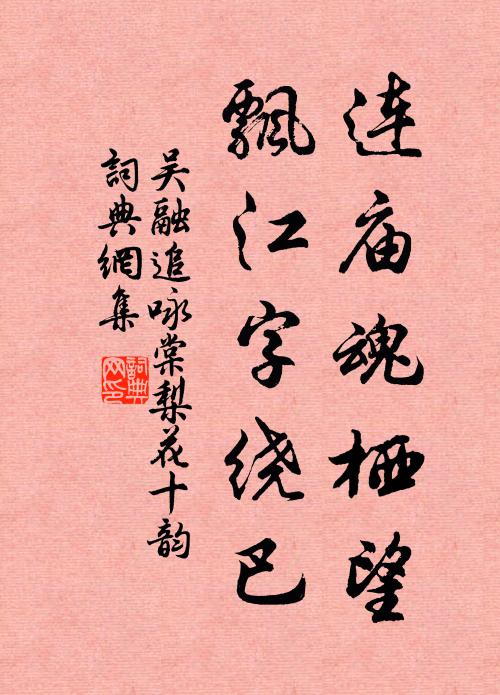 连庙魂栖望
飘江字绕巴
吴融追咏棠梨花十韵
词典網集
詞典網印